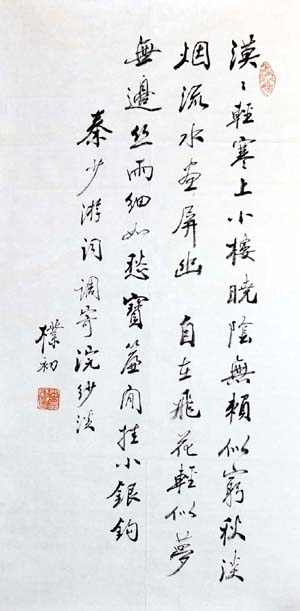 漠〻輕寒上小樓曉陰無賴似窮秋淡
烟流水畫屏幽 自在飛花輕似夢
無邊絲雨細如愁寶簾閒挂小銀鉤
秦少游词調寄浣纱溪
樸初